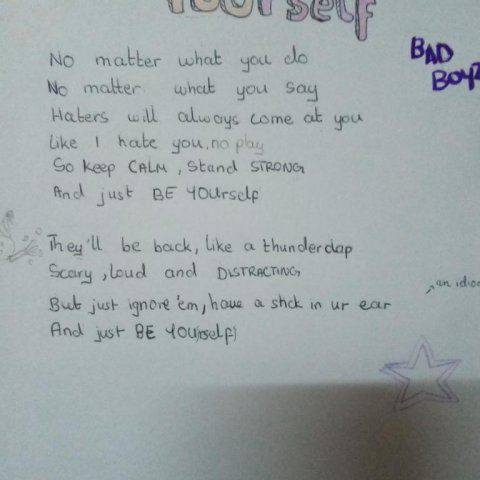 YOURSELF
BAD
BOYZ
No matter what you do
No matter what you say
Haters will always come at you
Like I hate you, no play
So keep CALM, Stand STRONG
And just BE YOUrself
They'll be back, like a thunderclap
Scary, loud and DISTRACTING
an idiom
But just ignore 'em, have a stick in ur ear
And just BE YOU(rself)